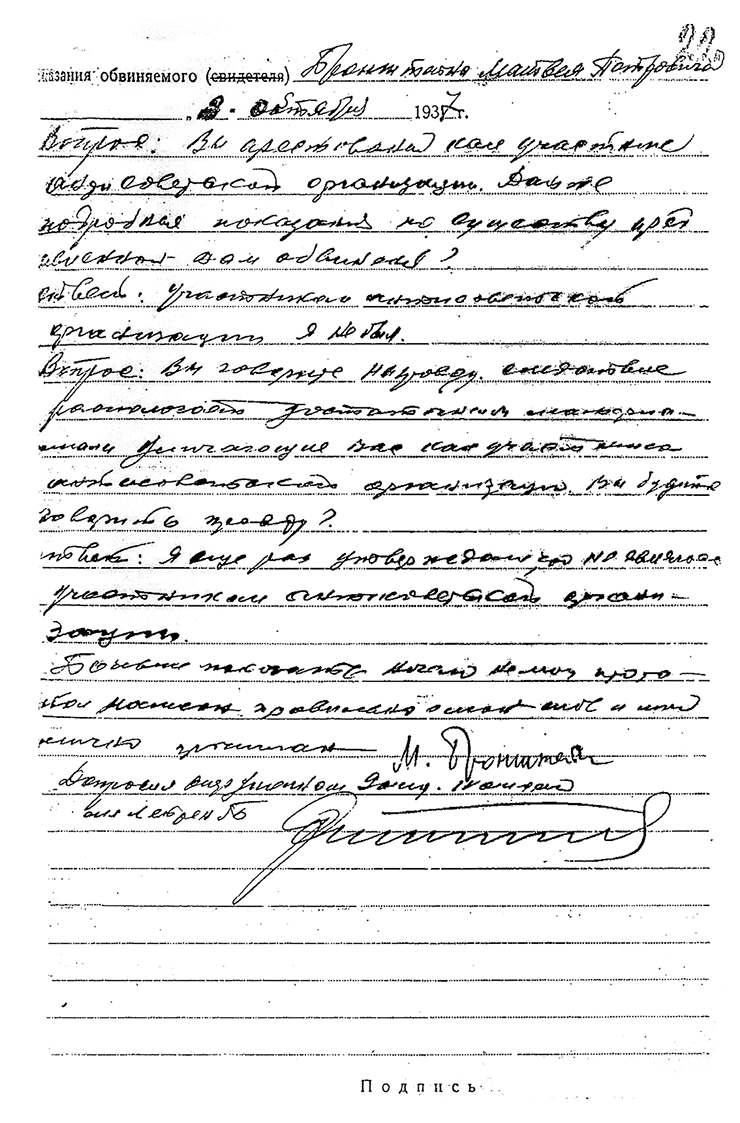 22
казания обвиняемого (свидетеля) Бронштейна Матвея Петровича
„2“ октября 1937г.
Вопрос: Вы арестованы как участник
антисоветской организации. Дайте
подробные показания по существу пред
явленного вам обвинения?
ответ: Участником антисоветской
организации я не был.
Вопрос: Вы говорите неправду. следствие
располагает достаточным материа-
лами уличающие вас как участника
антисоветской организации. Вы будите
говорить правду?
ответ: Я еще раз утверждаю что не являлся
участником антисоветской органи-
зации.
Больше показать ничего не могу прото-
кол написан правильно с моих слов и мной
лично прочитан М. Бронштейн
Допросил
Подпись